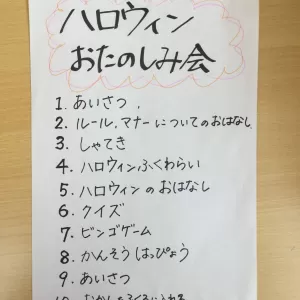 ハロウィン
おたのしみ会
1. あいさつ.
2. ルール,マナーについてのおはなし
3. しゃてき
4. ハロウィンふくわらい
5. ハロウィンのおはなし
6. クイズ
7. ビンゴゲーム
8. かんそうはっぴょう
9. あいさつ